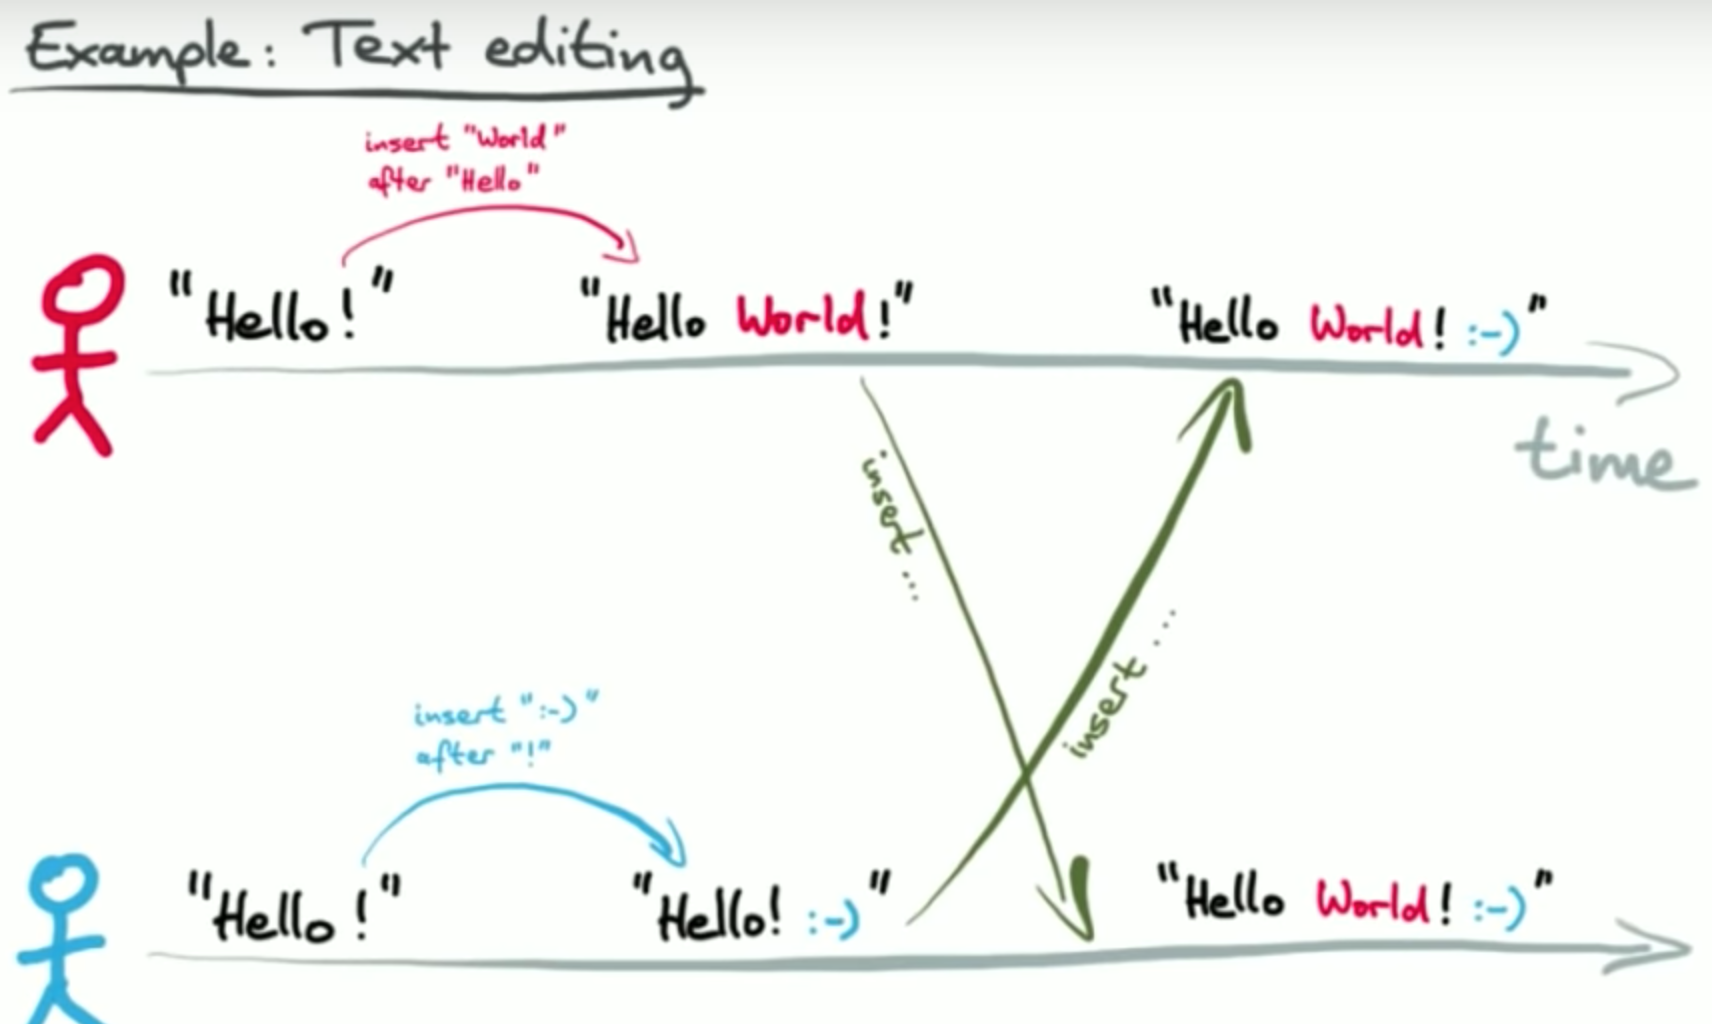 Example: Text editing
insert "World"
after "Hello"
"Hello!"
"Hello World!"
"Hello World! :-)"
time
insert ...
insert ...
insert ":-)"
after "!"
"Hello!"
"Hello! :-)"
"Hello World! :-)"